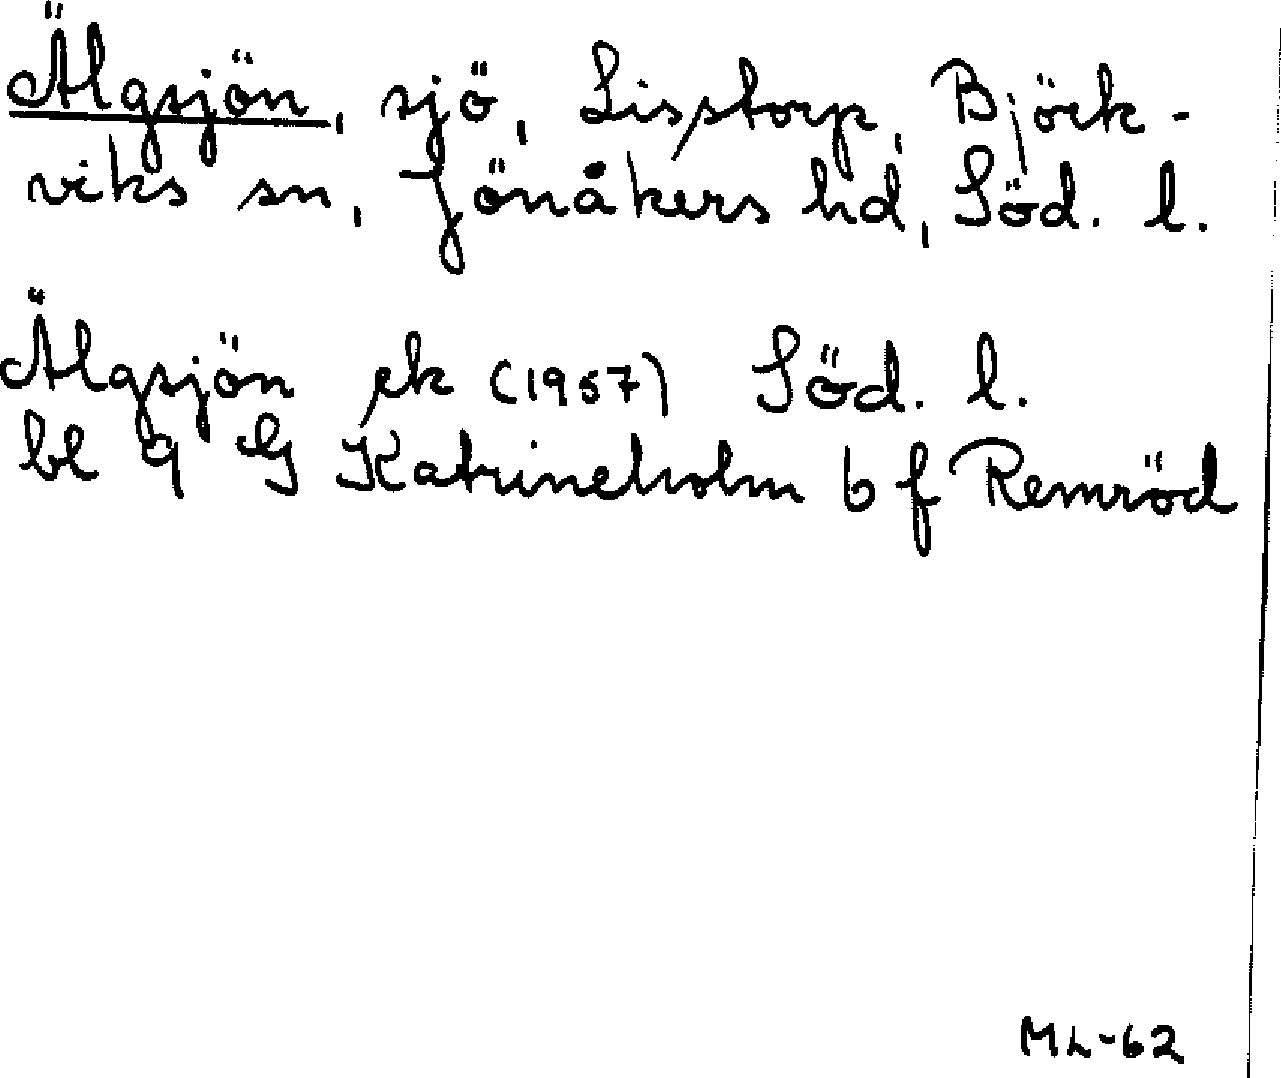 Älgsjön, sjö, Lisstorp, Björk-
viks sn, Jönåkers hd, Söd. l.
Älgsjön ek (1957) Söd. l.
bl 9 G Katrineholm b f Remröd
ML-62